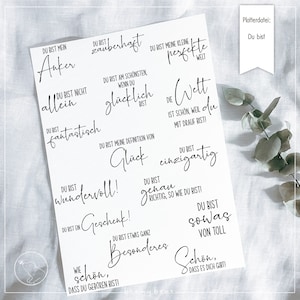 Plotterdatei:
Du bist!
DU BIST MEIN
Anker
DU BIST
zauberhaft
DU BIST MEINE KLEINE
perfekte
WELT
DU BIST NICHT
allein
DU BIST AM SCHÖNSTEN,
WENN DU
glücklich
BIST
DIE Welt
IST SCHÖN, WEIL du
MIT DRAUF BIST!
DU BIST
fantastisch
DU BIST MEINE DEFINITION VON
Glück
DU BIST
einzigartig
DU BIST
wundervoll!
DU BIST
genau
RICHTIG, SO WIE DU BIST!
DU BIST EIN
Geschenk!
DU BIST
sowas
VON TOLL
DU BIST ETWAS GANZ
Besonderes
WIE
schön,
DASS DU GEBOREN BIST!
Schön,
DASS ES DICH GIBT!